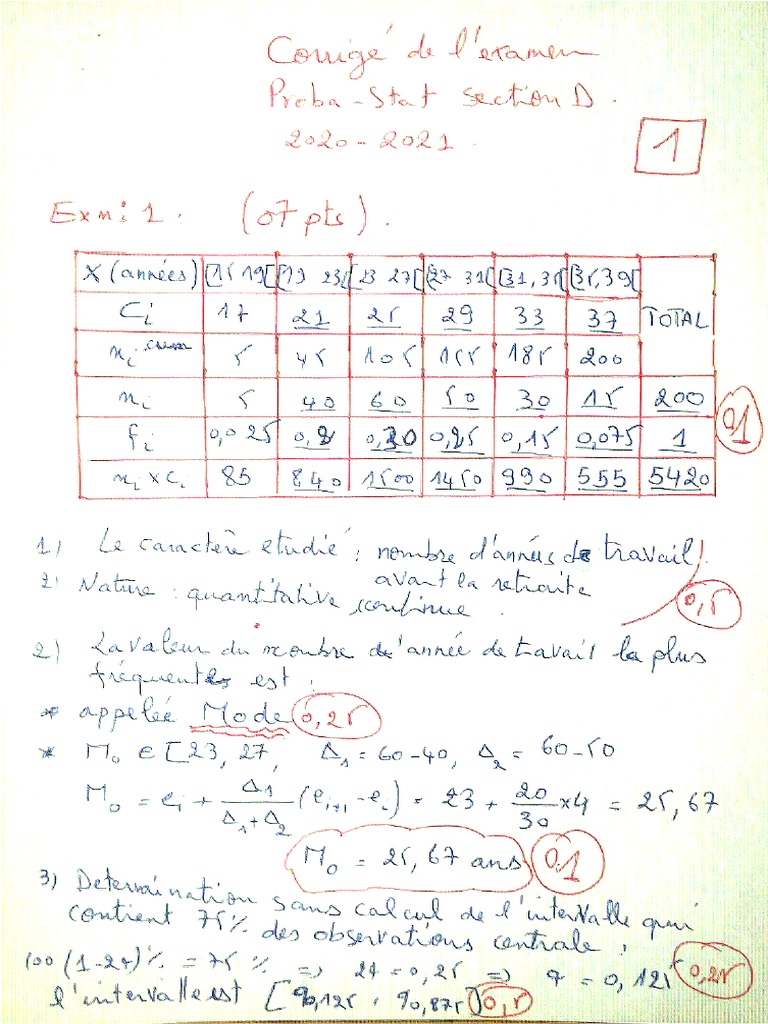 Corrigé de l'examen
Proba-Stat section D.
2020-2021
1
Exn: 1. (07 pts).
X (années) [15 19[ [19 23[ [23 27[ [27 31[ [31, 35[ [35, 39[ TOTAL
Ci 17 21 25 29 33 37
ni cum 5 45 105 155 185 200
ni 5 40 60 50 30 15 200
fi 0,025 0,2 0,30 0,25 0,15 0,075 1
01
ni x ci 85 840 1500 1450 990 555 5420
1) Le caractère étudié : nombre d'années de travail
avant la retraite
2: Nature : quantitative continue.
0,5
2) La valeur du nombre de l'année de travail la plus
fréquente est :
* appelée Mode 0,25
* Mo ∈ [23, 27, Δ1 = 60-40, Δ2 = 60-50
Mo = ei + Δ1/(Δ1+Δ2) (ei+1 - ei) = 23 + 20/30 x4 = 25,67
Mo = 25,67 ans 0,1
3) Détermination sans calcul de l'intervalle qui
contient 75% des observations centrale :
100 (1-2q)% = 75% => 2q = 0,25 => q = 0,125 0,25
l'intervalle est [q0,125 , q0,875] 0,5